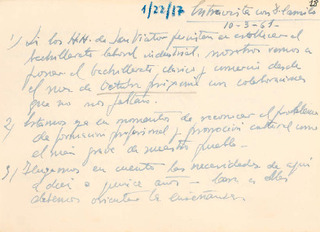 18
1/22/37 Entrevista con D. Camilo
10-3-61-
1) Si los H.H. de San Viator persisten en establecer el
bachillerato laboral industrial, nosotros vamos a
poner el bachillerato clásico y comercio desde
el mes de Octubre próximo con colaboraciones
que no nos faltan.
2) Estamos en momentos de reconocer el problema
de formación profesional y promoción cultural como
el más grave de nuestro pueblo.
3) Tengamos en cuenta las necesidades de aquí
a diez o quince años — hacia ellas
debemos orientar la enseñanza.